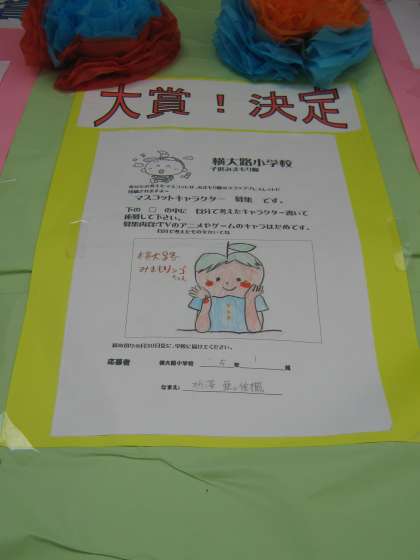 大賞！決定
横大路小学校
子供みまもり隊
マスコットキャラクター 募集 です。
下の □ の中に 自分で考えたキャラクター書いて
応募して下さい。
募集内容:TVのアニメやゲームのキャラはだめです。
自分で考えたものをかいてね
横大路
みまもりンゴ
ちゃん
応募者 横大路小学校 年 1 組
なまえ: